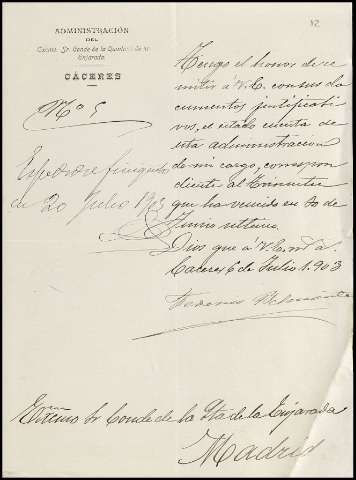 ADMINISTRACIÓN
DEL
Excmo. Sr. Conde de la Quinta de la
Enjarada
CÁCERES
Nº 5
en 20 Julio 1903
Tengo el honor de re
mitir á V.E. con sus do
cumentos justificati
vos, el estado cuenta de
esta administracion
de mi cargo, correspon
diente al trimestre
que ha vencido en 30 de
Junio ultimo.
Dios gue á V.E. m. a.
Caceres 6 de Julio 1.903
Excmo Sr Conde de la Qta de la Enjarada
Madrid